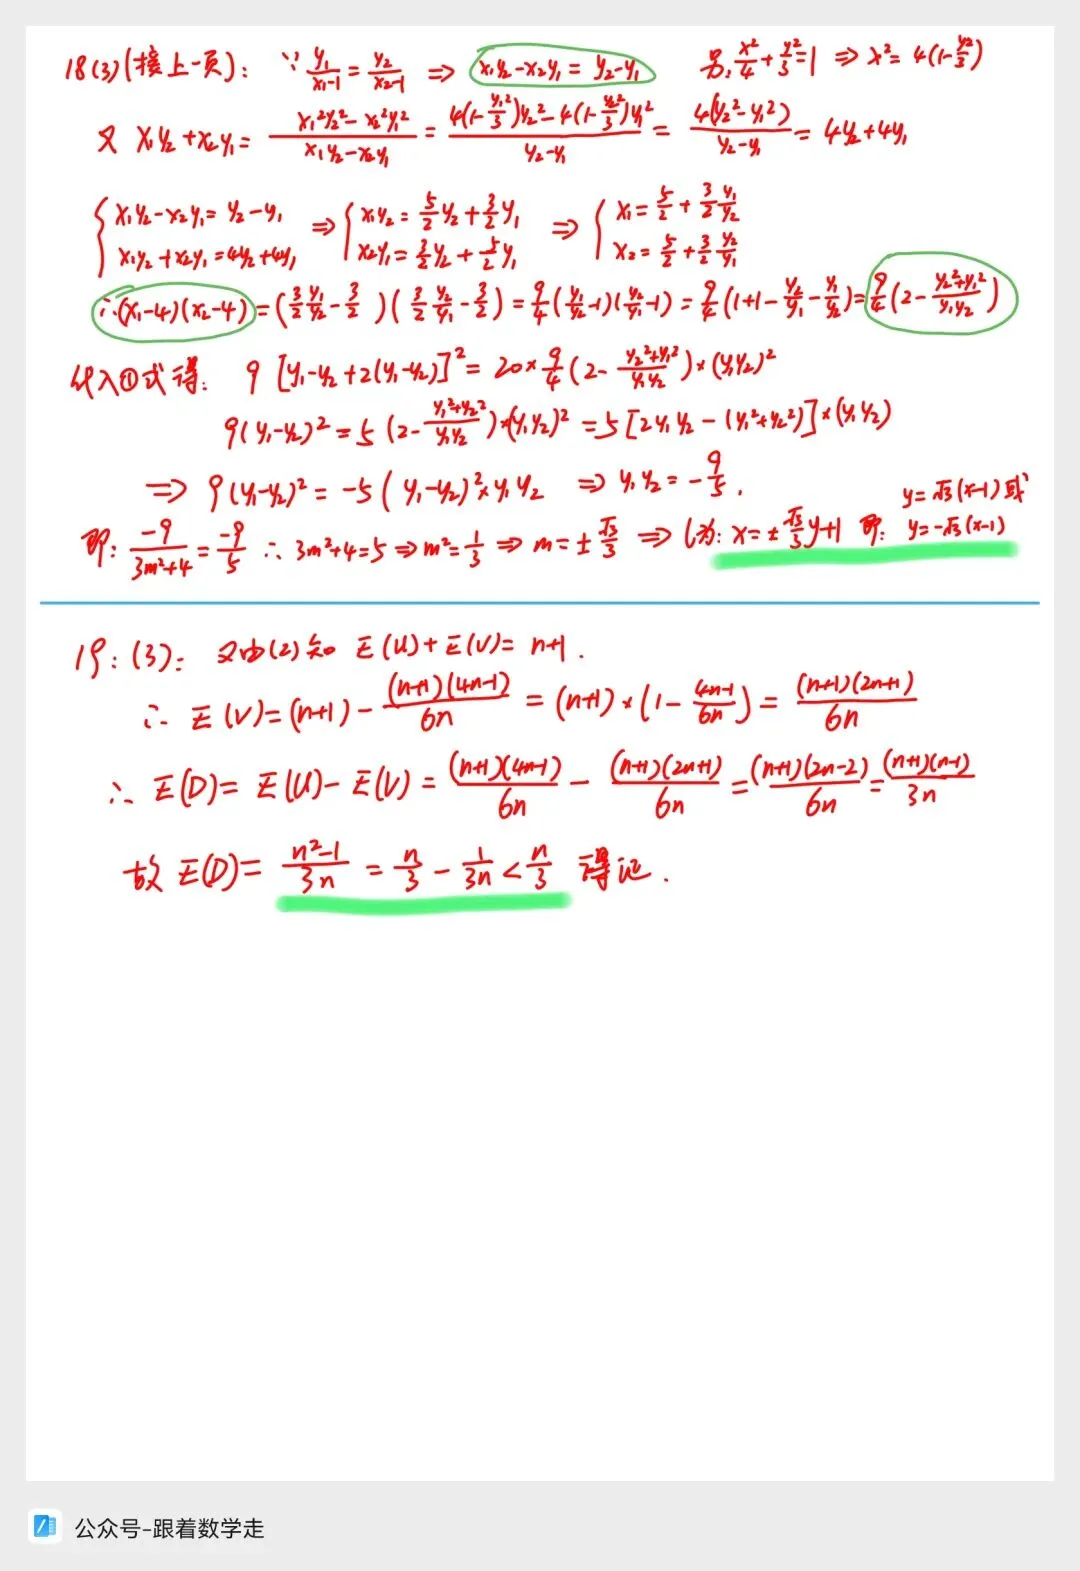 18(3)(接上一页): ∵ y₁/(x₁-1) = y₂/(x₂-1) ⇒ x₁y₂-x₂y₁ = y₂-y₁ 另, x²/4 + y²/3 = 1 ⇒ x² = 4(1-y²/3)
又 x₁y₂+x₂y₁ = (x₁²y₂²-x₂²y₁²)/(x₁y₂-x₂y₁) = (4(1-y₁²/3)y₂²-4(1-y₂²/3)y₁²)/(y₂-y₁) = 4(y₂²-y₁²)/(y₂-y₁) = 4y₂+4y₁
{ x₁y₂-x₂y₁ = y₂-y₁ ⇒ { x₁y₂ = 5/2 y₂ + 3/2 y₁ ⇒ { x₁ = 5/2 + 3/2 y₁/y₂
x₁y₂+x₂y₁ = 4y₂+4y₁ x₂y₁ = 3/2 y₂ + 5/2 y₁ x₂ = 5/2 + 3/2 y₂/y₁
∴ (x₁-4)(x₂-4) = (3/2 y₁/y₂ - 3/2)(3/2 y₂/y₁ - 3/2) = 9/4 (y₁/y₂-1)(y₂/y₁-1) = 9/4 (1+1-y₂/y₁-y₁/y₂) = 9/4 (2-(y₂²+y₁²)/(y₁y₂))
代入①式得: 9[y₁-y₂+2(y₁-y₂)]² = 20×9/4 (2-(y₂²+y₁²)/(y₁y₂))×(y₁y₂)²
9(y₁-y₂)² = 5(2-(y₁²+y₂²)/(y₁y₂))×(y₁y₂)² = 5[2y₁y₂-(y₁²+y₂²)]×(y₁y₂)
⇒ 9(y₁-y₂)² = -5(y₁-y₂)²×y₁y₂ ⇒ y₁y₂ = -9/5.
即: -9/(3m²+4) = -9/5 ∴ 3m²+4=5 ⇒ m²=1/3 ⇒ m=±√3/3 ⇒ l为: x=±√3/3 y+1 即: y=√3(x-1)或 y=-√3(x-1)
19: (3): 又由(2)知 E(U)+E(V)=n+1.
∴ E(V)=(n+1)-(n+1)(4n-1)/6n = (n+1)×(1-(4n-1)/6n) = (n+1)(2n+1)/6n
∴ E(D)=E(U)-E(V)=(n+1)(4n-1)/6n - (n+1)(2n+1)/6n = (n+1)(2n-2)/6n = (n+1)(n-1)/3n
故 E(D)=(n²-1)/3n = n/3 - 1/3n < n/3 得证.
公众号-跟着数学走